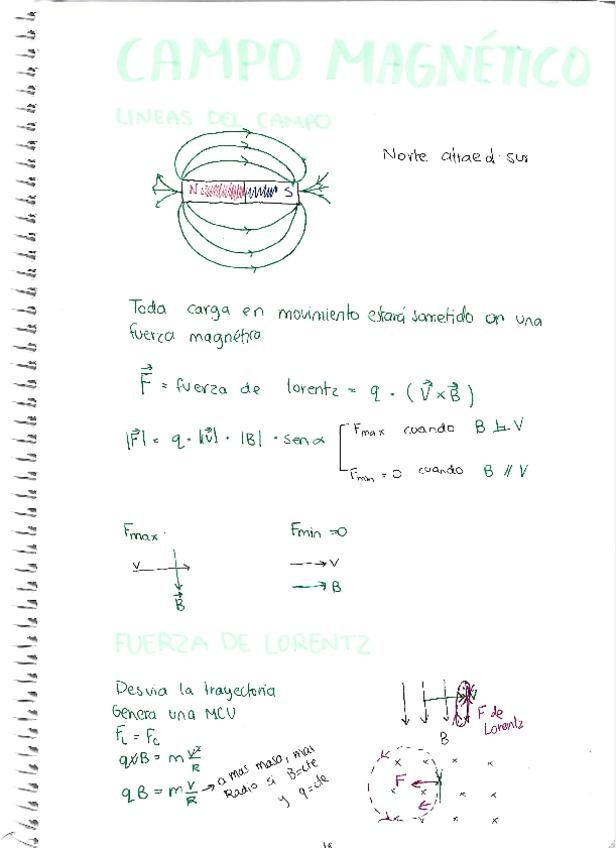 CAMPO MAGNÉTICO
LINEAS DEL CAMPO
Norte atrae d sur
N S
Toda carga en movimiento estará sometido en una
fuerza magnético
F⃗ = fuerza de lorentz = q · (V⃗ × B⃗)
|F⃗| = q · |V⃗| · |B| · sen α
Fmax cuando B ⊥ V
Fmin = 0 cuando B // V
Fmax
V
B⃗
Fmin = 0
V
B
FUERZA DE LORENTZ
Desvia la trayectoria
Genera una MCU
FL = Fc
qvB = m V²/R
qB = m V/R → a mas masa, mas
Radio si B=cte
y q=cte
F de
Lorentz
B
F